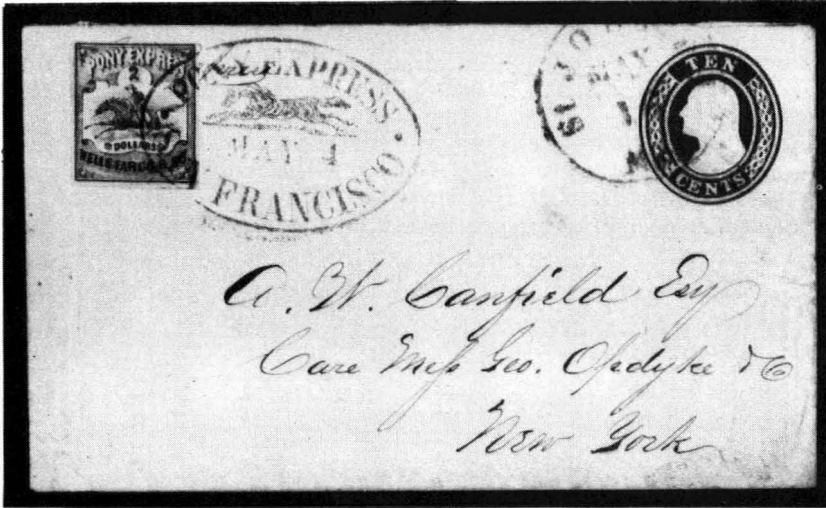 PONY EXPRESS
2
DOLLARS
WELLS FARGO & CO.
PONY EXPRESS
MAY 4
FRANCISCO
ST. JO
MAY
TEN
CENTS
A. W. Canfield Esq
Care Mess Geo. Opdyke & Co
New York